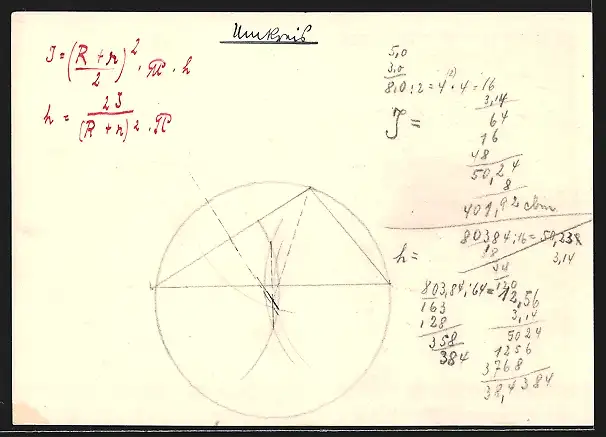 Umkreis
J = (R + r / 2)² · π · h
h = 2J / (R + r)² · π
5,0
3,0
8,0 : 2 = 4 (2) · 4 = 16
3,14
64
16
48
50,24
8
401,92 cbm
J =
h =
80384 : 16 = 50,238
3,14
803,84 : 64 = 12,56
163
128
358
384
3,14
5024
1256
3768
38,4384